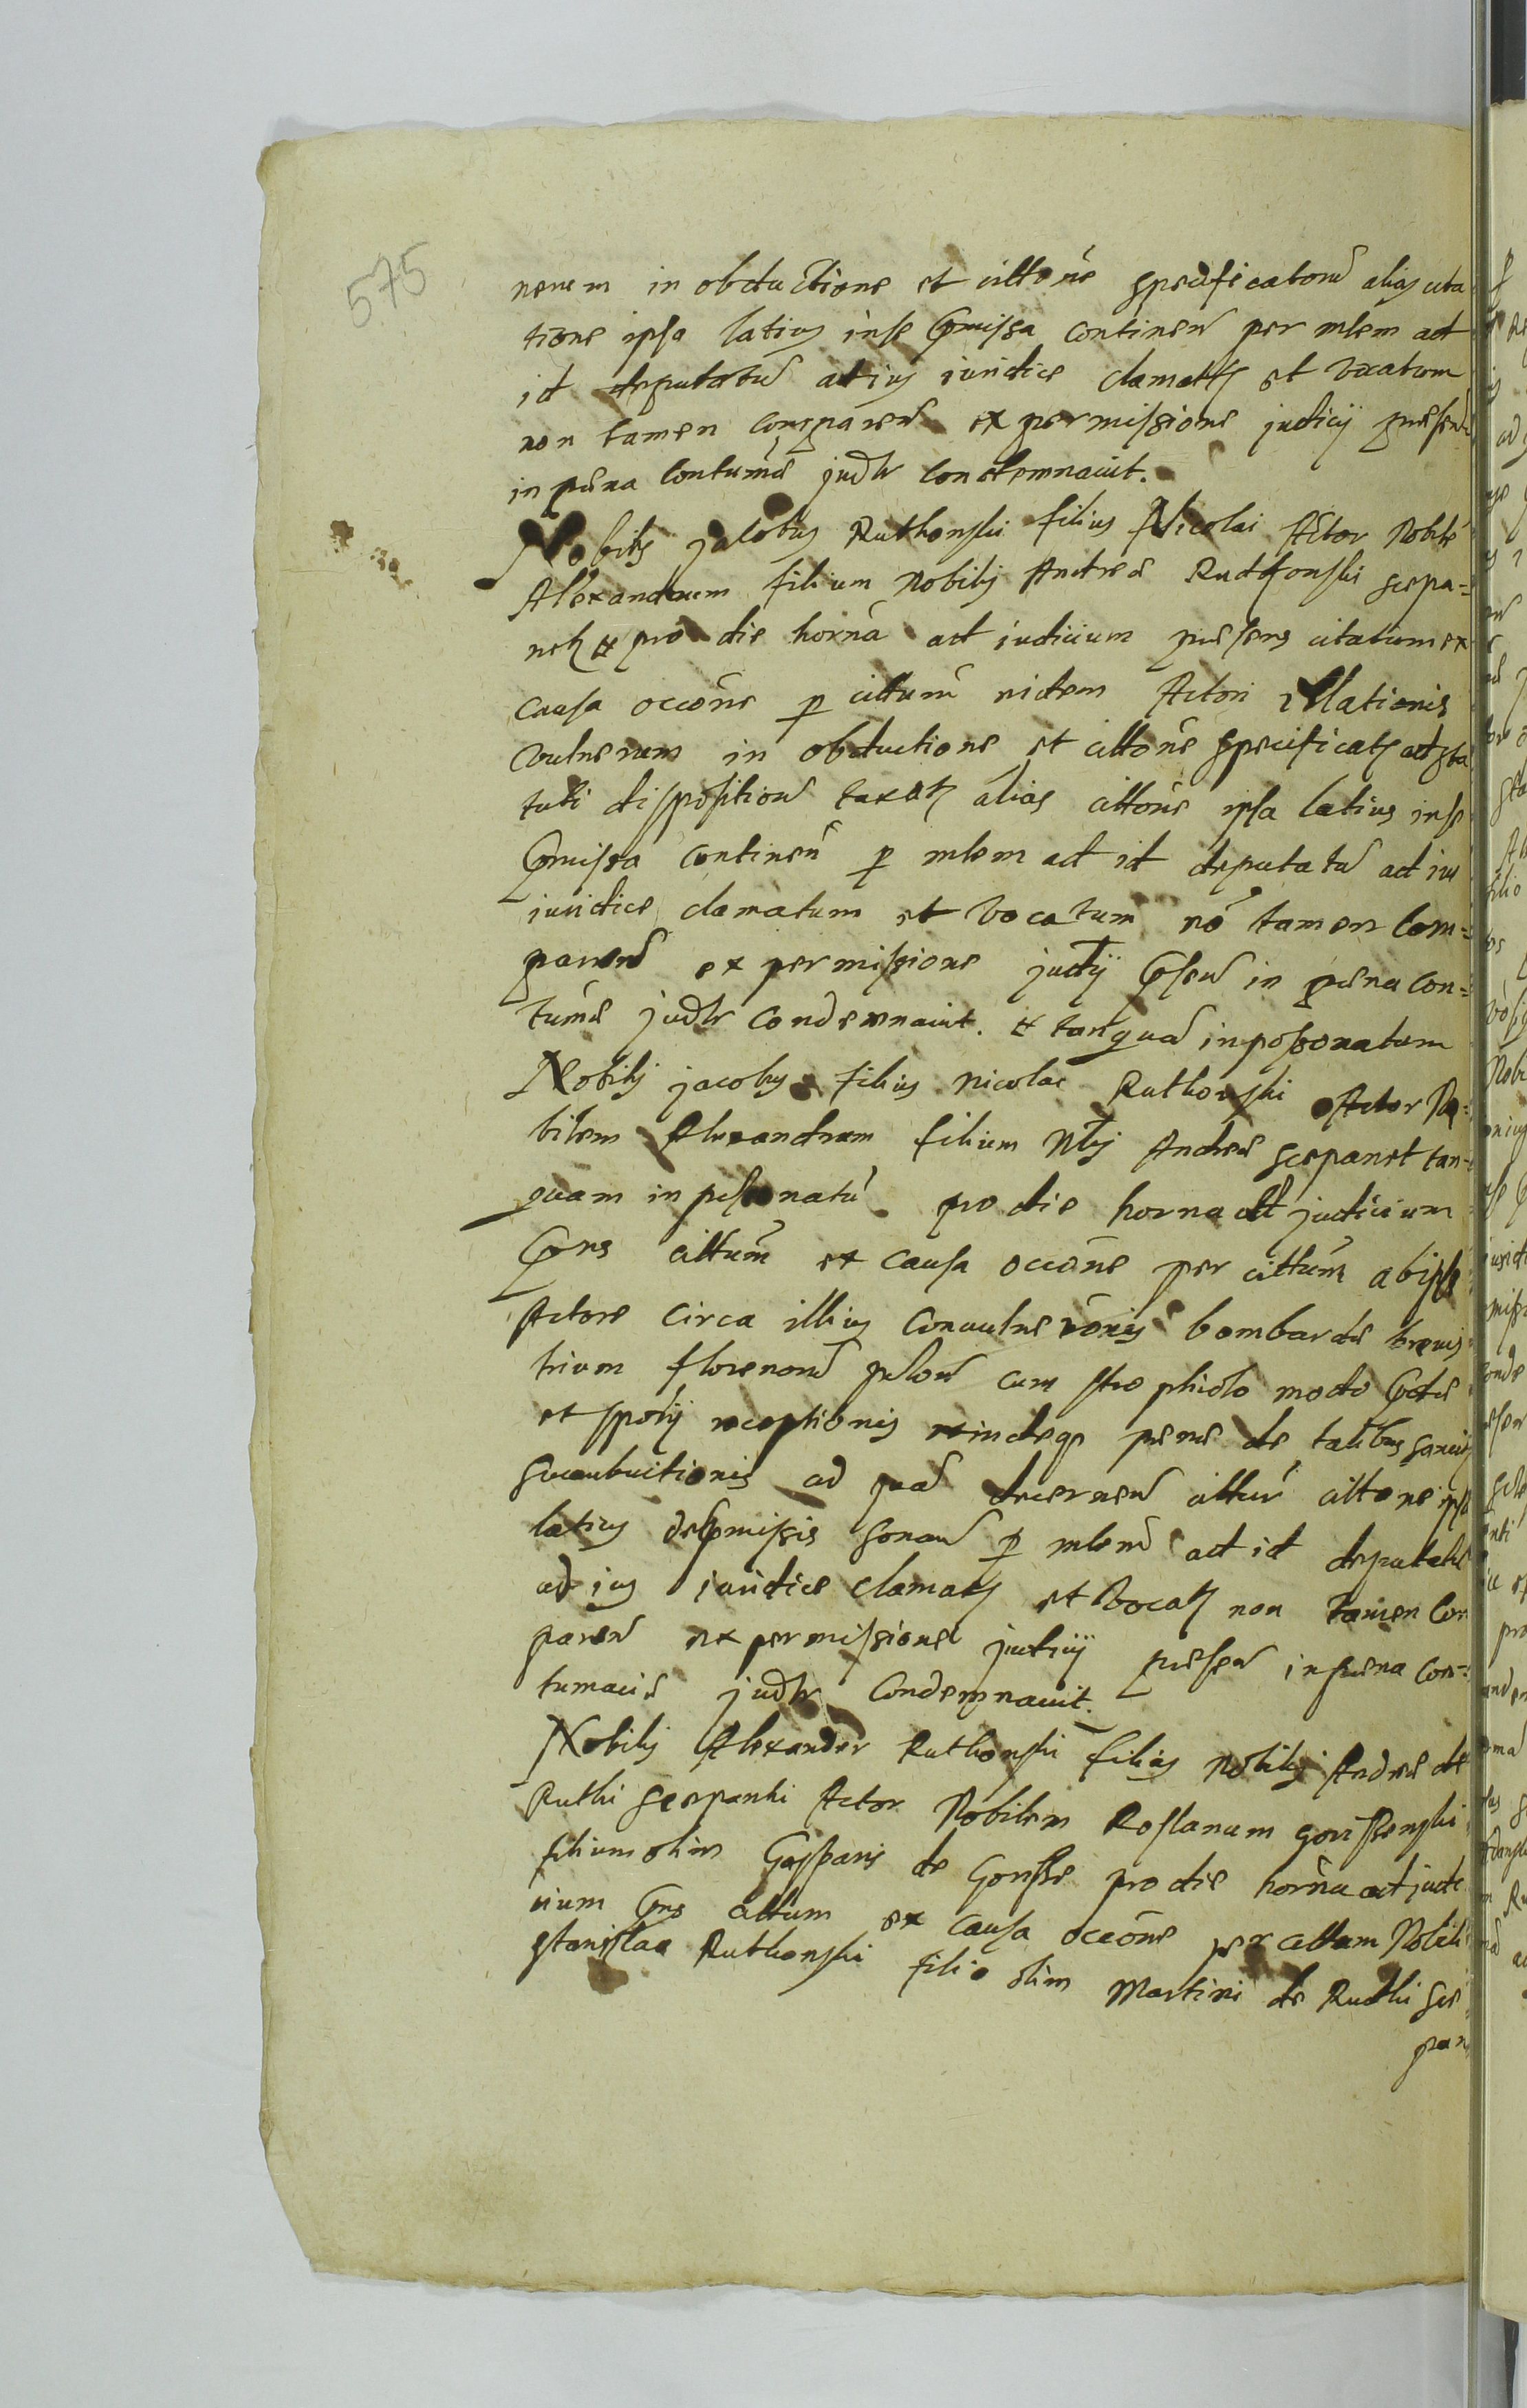 575
nerum in obductione et cittone specificatorum alias cita
tione ipsa latius in se pmissa continen per mlem ad
id deputatu ad ius iuridice clamatu et vocatum
non tamen comparen ex permissione judicij presen
in pena Contumac judlr Condemnauit.
Nobilis Jacobus Ruthowski filius Nicolai Actor Nobile
Alexandrum filium Nobilis Andreæ Rudkowski scepa=
nek pro die horna ad iudicium presens citatum ex
causa occone p cittum eidem Actori illationis
vulnerum in obductione et cittone specificat ad sta
tuti disposition taxat alias cittone ipsa latius in se
pmissa continen p mlem ad id deputatu ad ius
iuridice clamatum et vocatum no tamen Com=
paren ex permissione judij psen in pena Con=
tumac judlr Condemnauit. et tanqua inposonatum
Nobilis Jacobus filius Nicolai Ruthowski Actor No=
bilem Alexandrum filium Nlis Andreæ scepanek tan=
quam inposonatu pro die horna ad judicium
pns cittum ex causa occone per cittum ab ipso
Actore circa illius Conuulneronis bombardæ breuis
trium florenoru polon cum stro phiolo modo pdæ
et spolij receptionis exindeqe penæ de talibus sancit
succubuitionis ad qua decernen cittur cittone ipsa
latius de pmissis sonan p mlem ad id deputatu
ad ius iuridice clamat et vocat non tamen Com
paren ex permissione judicij presen in pena Con=
tumaciæ judlr Condemnauit.
Nobilis Alexander Ruthowski filius Nobilis Andreæ de
Ruthi scepanki Actor Nobilem Roslanum
filium olim Gasparis de pro die horna ad judi
cium pns cittum ex causa occone per cittum Nobili
Stanislao Ruthowski filio olim Martini de Rudki sce
pan